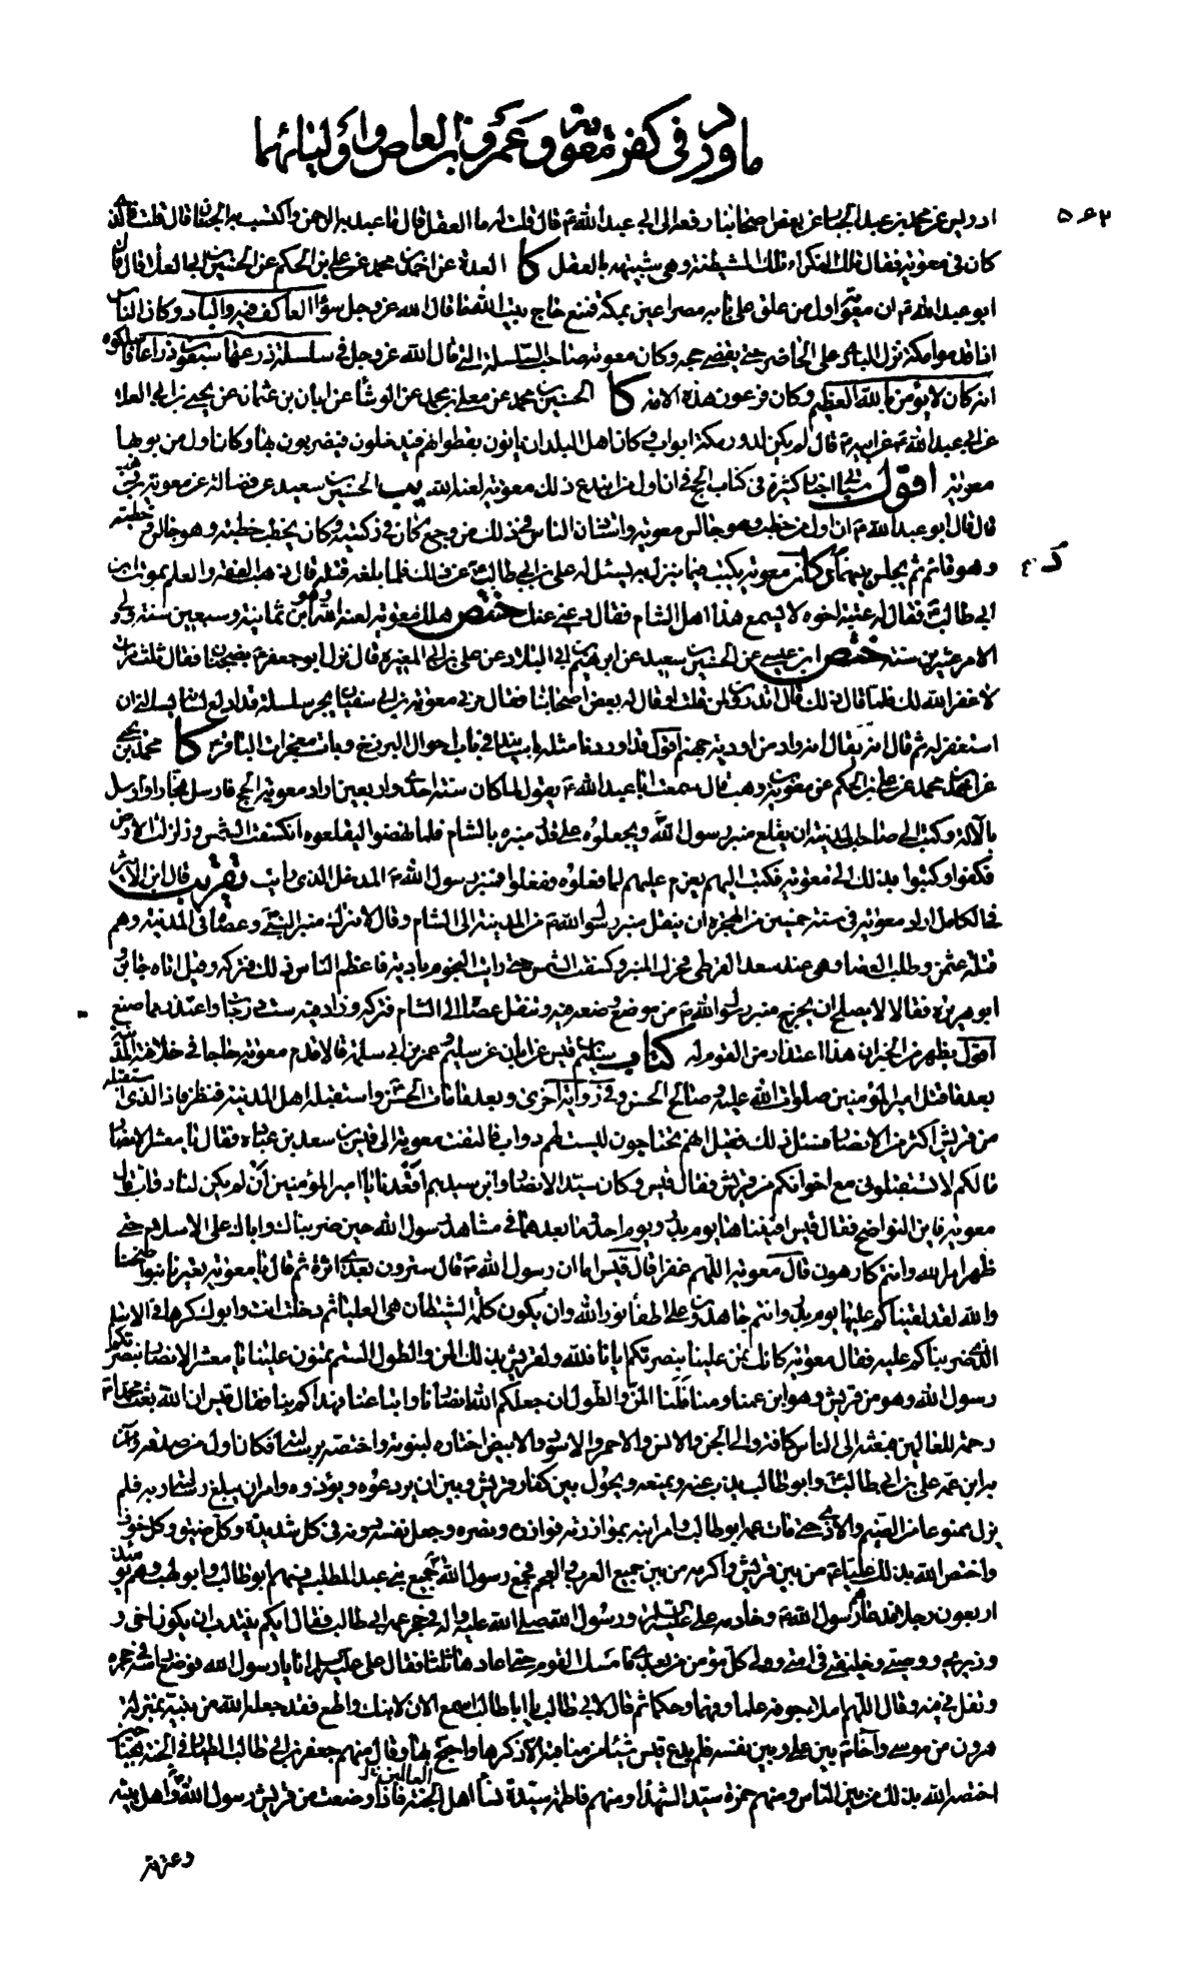 ما ورد في كفر معوية و عمرو بن العاص و اوليائهما
۵۶۲
ادريس عن محمد بن عبد الجبار عن بعض اصحابنا رفعه الى ابي عبد الله ع قال قلت له ما العقل قال ما عبد به الرحمن و اكتسب به الجنان قال قلت فالذي
كان في معوية فقال تلك النكراء تلك الشيطنة و هي شبيهة بالعقل كا العدة عن احمد بن محمد عن علي بن الحكم عن الحسين بن ابي العلا قال قال
ابو عبد الله ع ان معوية اول من علق على بابه مصراعين بمكة فمنع حاج بيت الله ما قال الله عز و جل سواء العاكف فيه و الباد و كان الناس
اذا قدموا مكة نزل البادي على الحاضر حتى يقضي حجه و كان معوية صاحب السلسلة التي قال الله عز و جل في سلسلة ذرعها سبعون ذراعا فاسلكوه
انه كان لا يؤمن بالله العظيم و كان فرعون هذه الامة كا الحسين بن محمد عن معلى بن محمد عن الوشا عن ابان بن عثمان عن يحيى بن ابي العلا
عن ابي عبد الله ع عن ابيه ع قال لم يكن لدور مكة ابواب و كان اهل البلدان ياتون بقطرانهم فيدخلون فيضربون بها و كان اول من بوبها
معوية اقول ستاتي اخبار كثيرة في كتاب الحج في ان اول من ابتدع ذلك معوية لعنه الله يب الحسين بن سعيد عن فضالة عن معوية بن وهب
قال قال ابو عبد الله ع ان اول من خطب و هو جالس معوية و استاذن الناس في ذلك من وجع كان في ركبتيه و كان يخطب خطبة و هو جالس و خطبة
و هو قائم ثم يجلس بينهما كنز معوية يكتب فيما ينزل به ليسئل له علي بن ابي طالب ع عن ذلك فلما بلغه قتله قال ذهب الفقه و العلم بموت ابن
ابي طالب ع فقال له عتبة اخوه لا يسمع هذا اهل الشام فقال دعني عنك ختص هلك معوية لعنه الله و هو ابن ثمانية و سبعين سنة و ولي
الامر عشرين سنة ختص ابن عيسى عن الحسين بن سعيد عن ابراهيم بن ابي البلاد عن علي بن ابي المغيرة قال نزل ابو جعفر ع بضجنان فقال ثلث مرات
لا غفر الله لك فلما قال ذلك قال اتدرون لمن قلت او قال له بعض اصحابنا فقال مر بي معوية بن ابي سفيان يجر سلسلة قد ادلع لسانه يسالني ان
استغفر له ثم قال انه يقال انه واد من اودية جهنم اقول قد اوردنا مثله باسانيد في باب احوال البرزخ و باب معجزات الباقر ع كا محمد بن يحيى
عن احمد بن محمد عن علي بن الحكم عن معوية بن وهب قال سمعت ابا عبد الله ع يقول لما كان سنة احدى و اربعين اراد معوية الحج فارسل نجارا و ارسل
بالآلة و كتب الى صاحب المدينة ان يقلع منبر رسول الله ص و يجعلوه على قدر منبره بالشام فلما نهضوا ليقلعوه انكسفت الشمس و زلزلت الارض
فكفوا و كتبوا بذلك الى معوية فكتب اليهم يعزم عليهم لما فعلوه ففعلوا فمنبر رسول الله ص المدخل الذي رايت تقريب قال ابن الاثير
في الكامل اراد معوية في سنة خمسين من الهجرة ان ينقل منبر رسول الله ص من المدينة الى الشام و قال لا يترك منبر النبي ص و عصاه في المدينة و هم
قتلة عثمن و طلب العصا و هي عند سعد القرظي فحرك المنبر و كسفت الشمس حتى رايت النجوم بادية فاعظم الناس ذلك فتركه و قيل اتاه جابر و
ابو هريرة فقالا لا يصلح ان يخرج منبر رسول الله ص من موضع وضعه فيه و تنقل عصاه الى الشام فتركه و زاد فيه ست درجات و اعتذر مما صنع
اقول يظهر من الخبر ان هذا اعتذار من القوم له كتاب سليم بن قيس عن ابان عن سليم و عمر بن ابي سلمة قالا قدم معوية حاجا في خلافته المدينة
بعد ما قتل امير المؤمنين صلوات الله عليه و صالح الحسن و في رواية اخرى و بعد ما مات الحسن ع و استقبله اهل المدينة فنظر فاذا الذي استقبله
من قريش اكثر من الانصار فسئل ذلك فقيل انهم يحتاجون ليست لهم دواب فالتفت معوية الى قيس بن سعد بن عبادة فقال يا معشر الانصار
مالكم لا تستقبلوني مع اخوانكم من قريش فقال قيس و كان سيد الانصار و ابن سيدهم اقعدنا يا امير المؤمنين ان لم يكن لنا دواب قال
معوية فاين النواضح فقال قيس افنيناها يوم بدر و يوم احد و ما بعدهما في مشاهد رسول الله حين ضربناك و اباك على الاسلام حتى
ظهر امر الله و انتم كارهون قال معوية اللهم غفرا قال قيس اما ان رسول الله ص قال سترون بعدي اثرة ثم قال يا معوية تعيرنا بنواضحنا
و الله لقد لقيناكم عليها يوم بدر و انتم جاهدون على اطفاء نور الله و ان يكون كلمة الشيطان هي العليا ثم دخلت انت و ابوك كرها في الاسلام
الذي ضربناكم عليه فقال معوية كانك تمن علينا بنصرتكم ايانا فلله و لقريش بذلك المن و الطول الستم تمنون علينا يا معشر الانصار بنصرتكم
رسول الله و هو من قريش و هو ابن عمنا و منا فلنا المن و الطول ان جعلكم الله انصارنا و اتباعنا فهداكم بنا فقال قيس ان الله بعث محمدا ص
رحمة للعالمين فبعثه الى الناس كافة و الى الجن و الانس و الاحمر و الاسود و الابيض اختاره لنبوته و اختصه برسالته فكان اول من صدقه و آمن
به ابن عمه علي بن ابي طالب ع و ابو طالب يذب عنه و يمنعه و يحول بين كفار قريش و بين ان يردعوه و يؤذوه و امر ان يبلغ رسالة ربه فلم
يزل ممنوعا من الضيم و الاذى حتى مات عمه ابو طالب و امر ابنه بموازرته فوازره و نصره و جعل نفسه دونه في كل شديدة و كل ضيق و كل خوف
و اختص الله بذلك عليا ع من بين قريش و اكرمه من بين جميع العرب و العجم فجمع رسول الله ص جميع بني عبد المطلب فيهم ابو طالب و ابو لهب و هم يومئذ
اربعون رجلا فدعاهم رسول الله ص و خادمه علي عليه السلم و رسول الله صلى الله عليه و اله في حجر عمه ابي طالب فقال ايكم ينتدب ان يكون اخي و
وزيري و وصيي و خليفتي في امتي و ولي كل مؤمن من بعدي فامسك القوم حتى اعادها ثلثا فقال علي عليه السلم انا يا رسول الله فوضع راسه في حجره
و تفل في فيه و قال اللهم املأ جوفه علما و فهما و حكما ثم قال لابي طالب يا ابا طالب اسمع الان لابنك و اطع فقد جعله الله من نبيه بمنزلة
هرون من موسى و آخى ص بين علي و بين نفسه فلم يدع قيس شيئا من مناقبه الا ذكرها و احتج بها و قال منهم جعفر بن ابي طالب الطيار في الجنة بجناحين
اختصه الله بذلك من بين الناس و منهم حمزة سيد الشهداء و منهم فاطمة سيدة نساء اهل الجنة فاذا وضعت من قريش رسول الله ص و اهل بيته
العالمين
و عترته